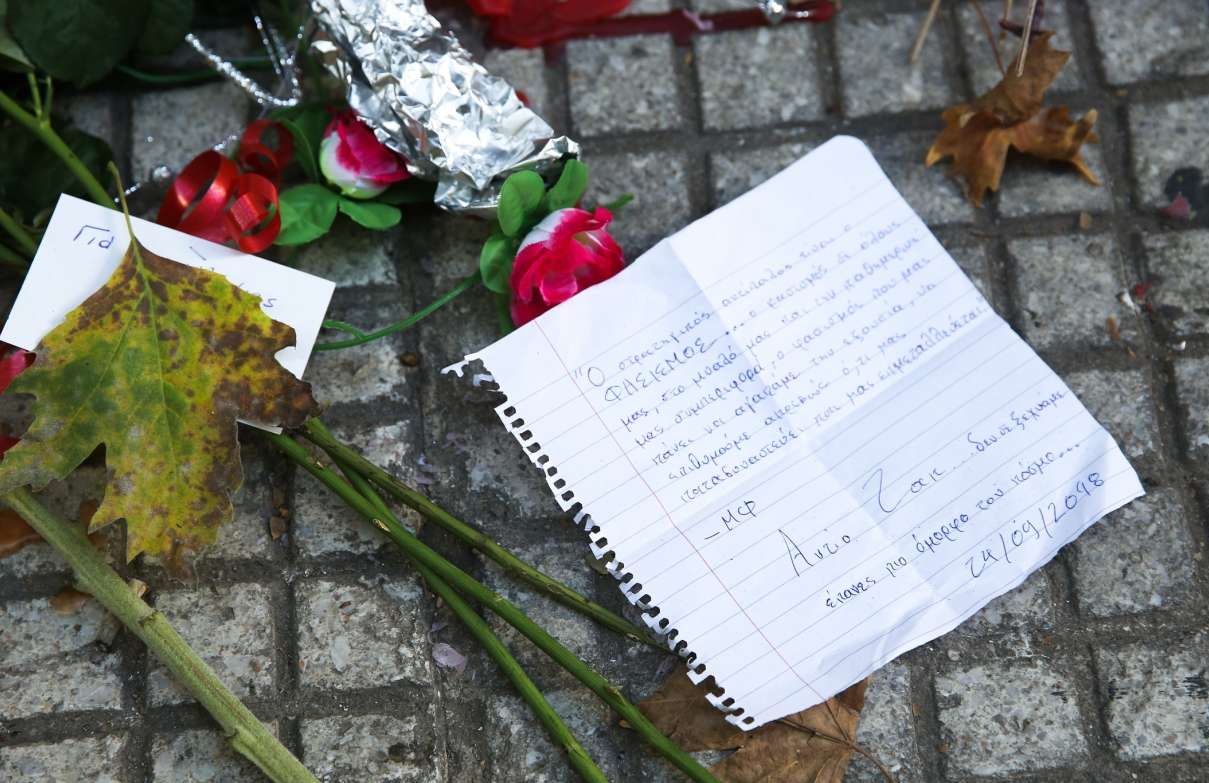 Για
"Ο στρατηγικός αντίπαλος είναι ο
ΦΑΣΙΣΜΟΣ ... ο φασισμός σε όλους
μας, στο μυαλό μας και την καθημερινή
μας συμπεριφορά, ο φασισμός που μας
κάνει να αγαπάμε την εξουσία, να
επιθυμούμε ακριβώς ό,τι μας
καταδυναστεύει και μας εκμεταλλεύεται"
-ΜΦ
Αντίο Ζακ ... δεν σε ξεχνάμε
έκανες πιο όμορφο τον κόσμο...
24/09/2018